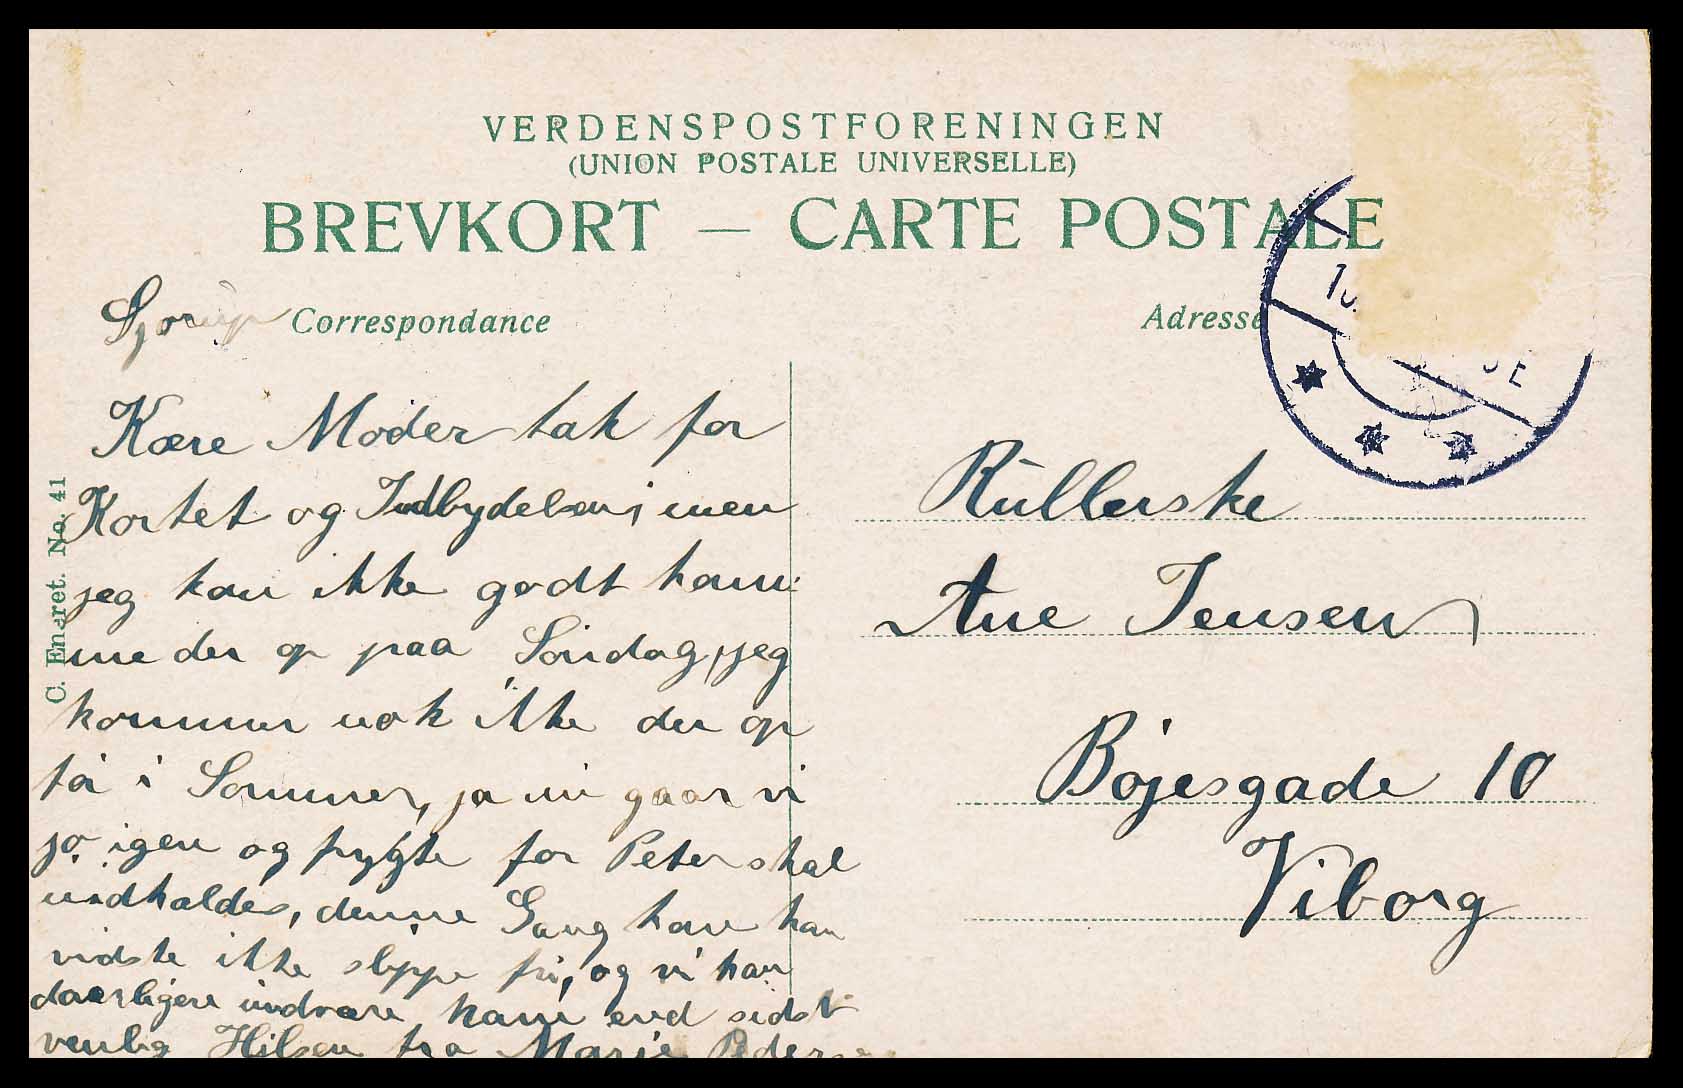 VERDENSPOSTFORENINGEN
(UNION POSTALE UNIVERSELLE)
BREVKORT — CARTE POSTALE
Sjørup
Correspondance
Adresse
Kære Moder tak for
Kortet og Indbydelsen, men
jeg kan ikke godt kom
me der op paa Søndag, jeg
kommer nok ikke der op
før i Sommer, ja nu gaar vi
jo igen og frygte for Peter skal
indkaldes, denne Gang kan han
vidste ikke slippe fri, og vi kan
daarligere undvære ham end sidst
venlig Hilsen fra Marie Peders
C. Eneret. No. 41
Rullerske
Ane Jensen
Bojesgade 10
Viborg